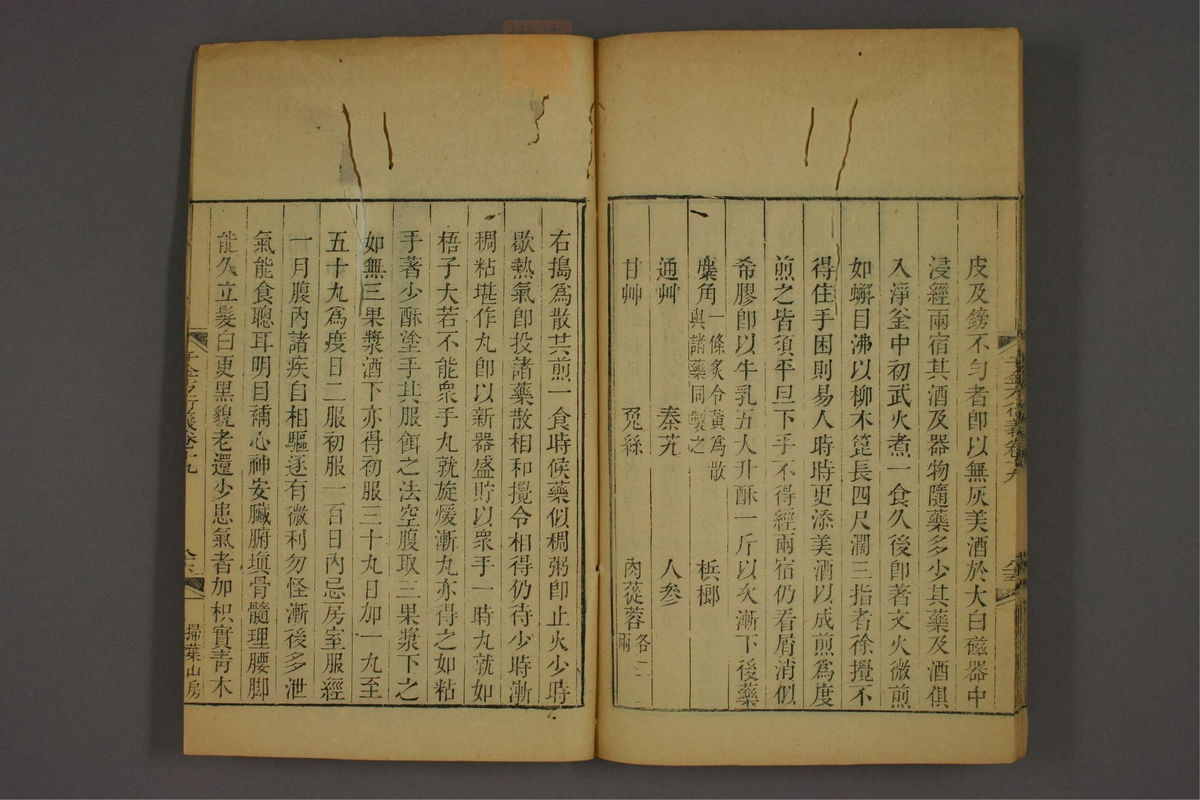 皮及鎊不勻者卽以無灰美酒於大白磁器中
浸經兩宿其酒及器物隨藥多少其藥及酒俱
入淨釜中初武火煮一食久後卽著文火微煎
如蠏目沸以柳木箆長四尺濶三指者徐攪不
得住手困則易人時時更添美酒以成煎爲度
煎之皆須平旦下手不得經兩宿仍看屑消似
希膠卽以牛乳五大升酥一斤以次漸下後藥
麋角一條炙令黃爲散
與諸藥同製之
檳榔
通艸 秦艽 人參
甘艸 兔絲 肉蓯蓉各二
兩
右搗爲散共煎一食時候藥似稠粥卽止火少時
歇熱氣卽投諸藥散相和攪令相得仍待少時漸
稠粘堪作丸卽以新器盛貯以衆手一時丸就如
梧子大若不能衆手丸就旋煖漸丸亦得之如粘
手著少酥塗手其服餌之法空腹取三果漿下之
如無三果漿酒下亦得初服三十丸日加一丸至
五十丸爲度日二服初服一百日內忌房室服經
一月腹內諸疾自相驅逐有微利勿怪漸後多泄
氣能食聰耳明目補心神安臟腑塡骨髓理腰脚
能久立髮白更黑貌老還少患氣者加枳實靑木
掃葉山房